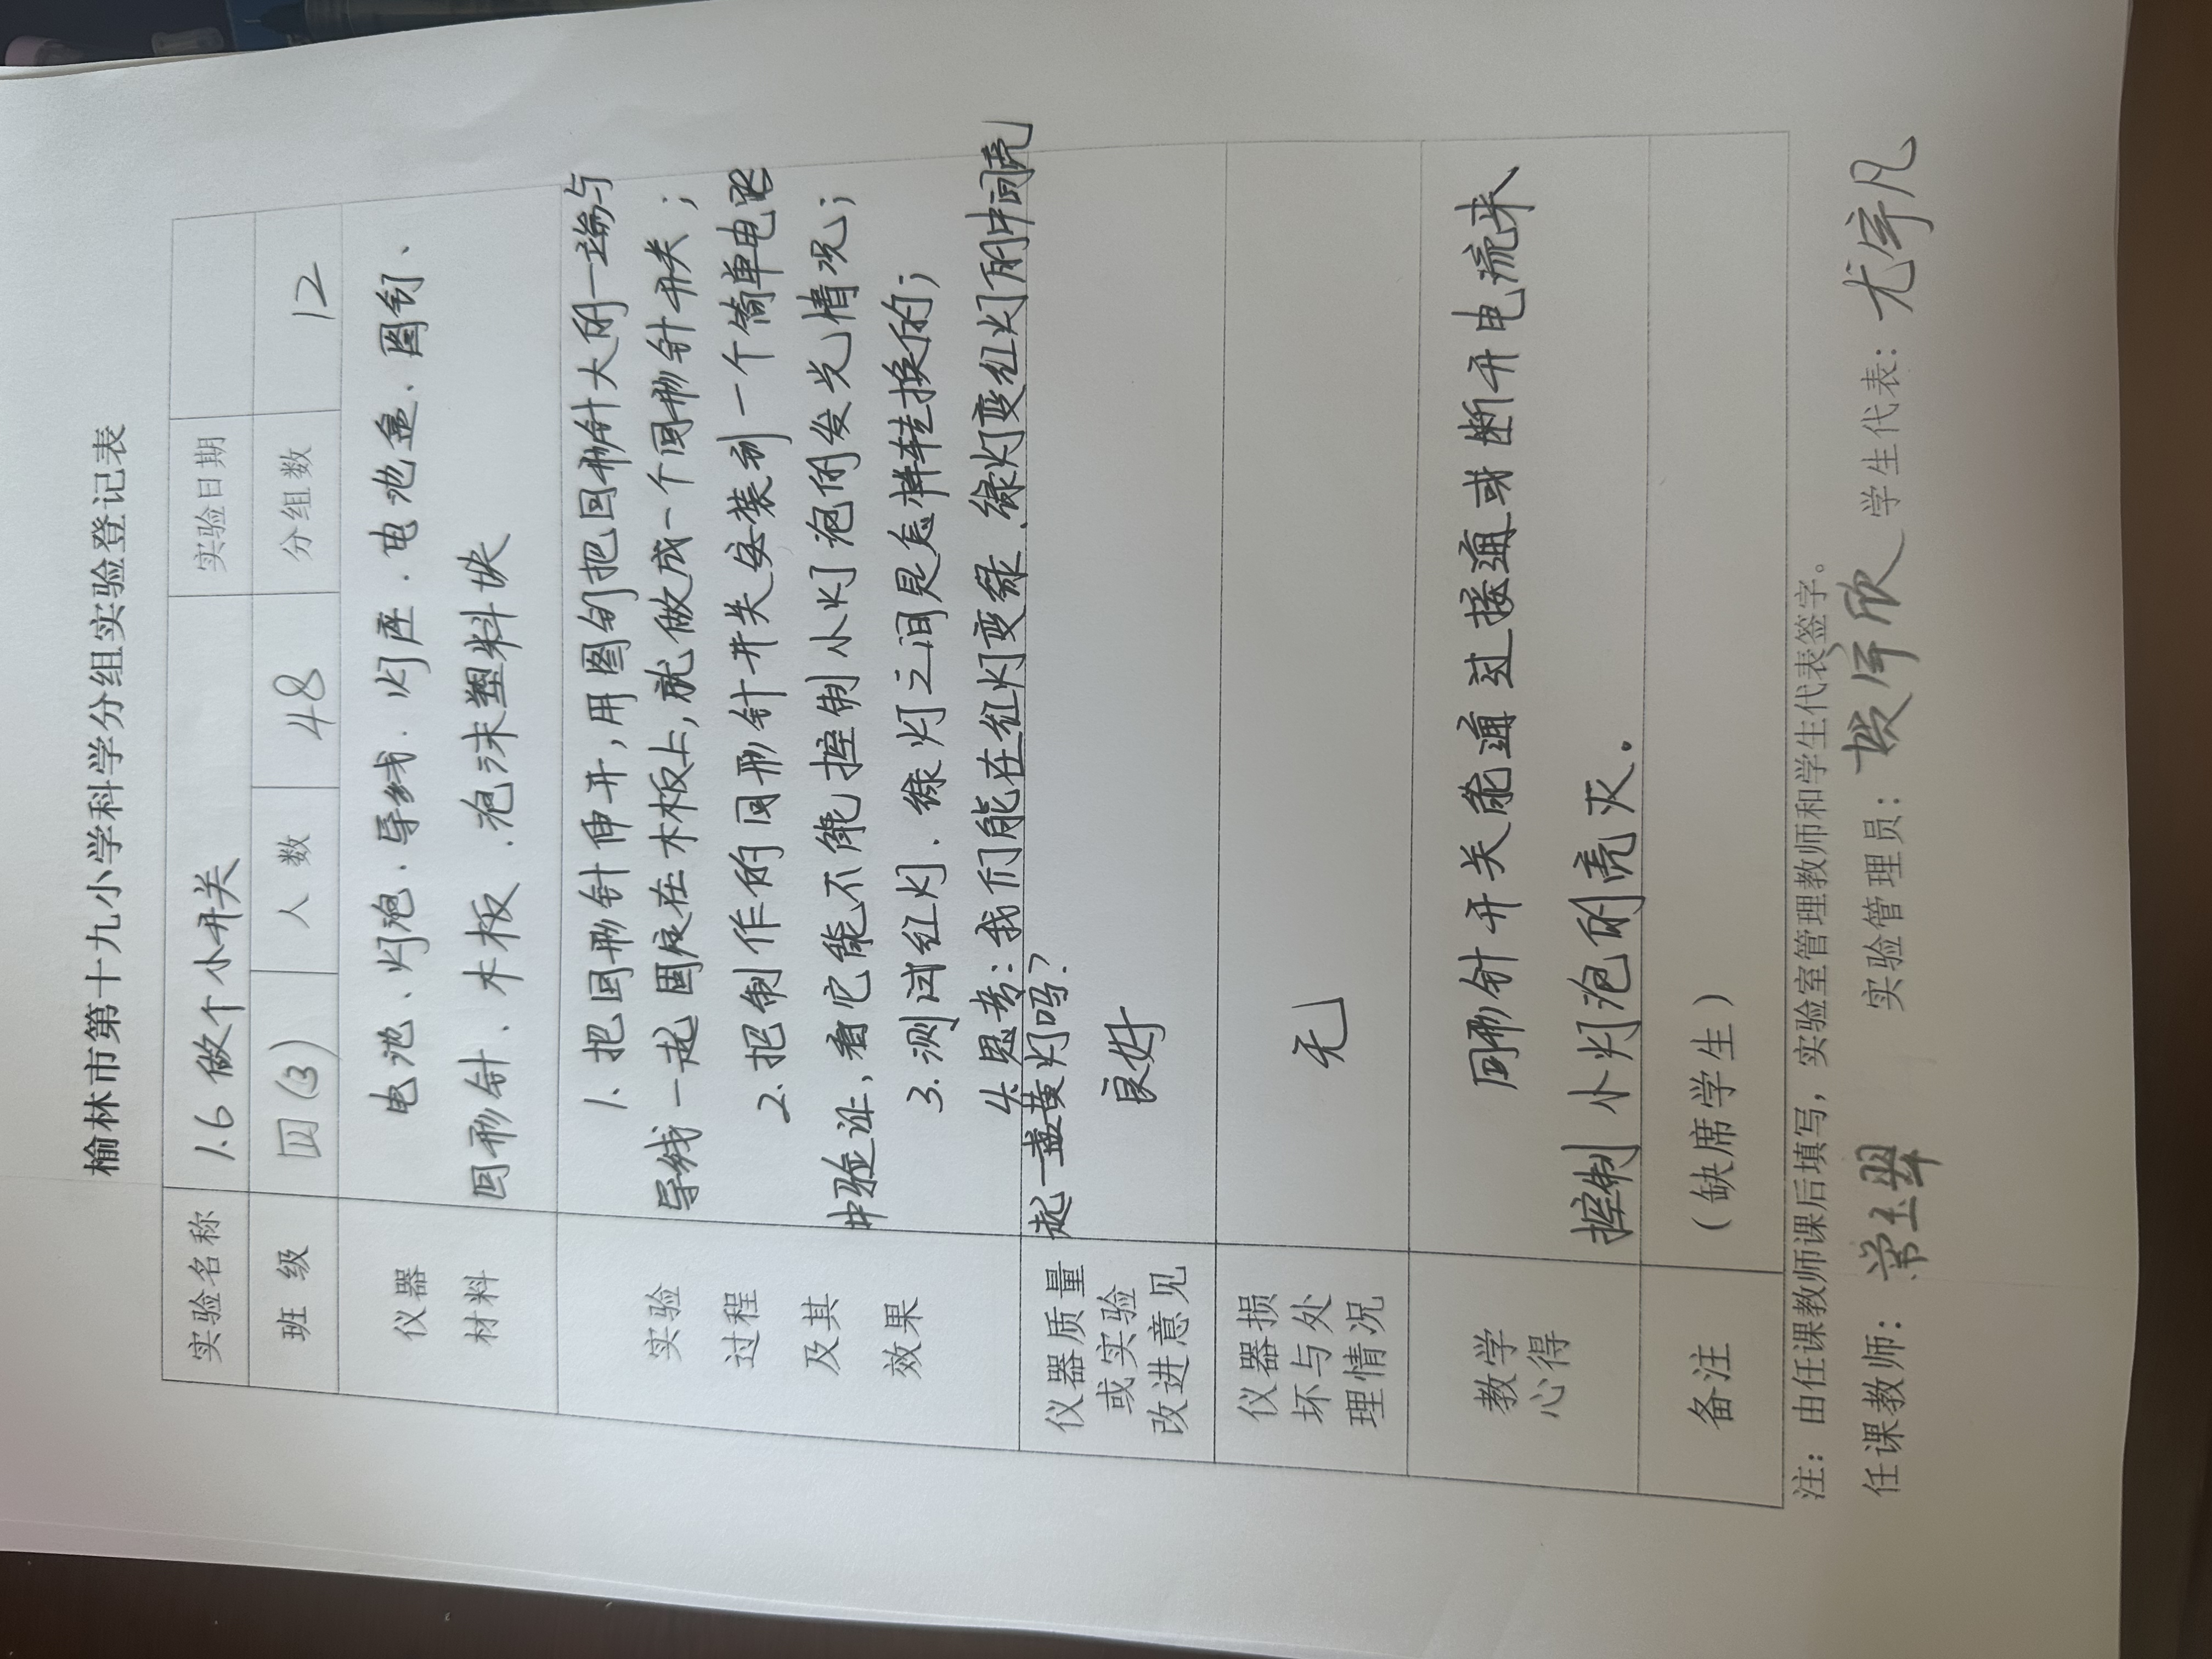 榆林市第十九小学科学分组实验登记表
实验名称 1.6 做个小开关 实验日期
班 级 四(3) 人 数 48 分组数 12
仪器 电池、灯泡、导线、灯座、电池盒、图钉、
材料 回形针、木板、泡沫塑料块
1. 把回形针伸开,用图钉把回形针大的一端与
实验 导线一起固定在木板上,就做成一个回形针开关;
过程 2. 把制作的回形针开关安装到一个简单电路
及其 中验证,看它能不能控制小灯泡的发光情况;
效果 3. 测试红灯、绿灯之间是怎样转换的;
4. 思考:我们能在红灯变绿、绿灯变红灯的中间亮
起一盏黄灯吗?
仪器质量
或实验 良好
改进意见
仪器损
坏与处 无
理情况
教学 回形针开关能通过接通或断开电流来
心得 控制小灯泡的亮灭。
备注 (缺席学生)
注:由任课教师课后填写,实验室管理教师和学生代表签字。
任课教师: 实验管理员: 学生代表:尤宇凡